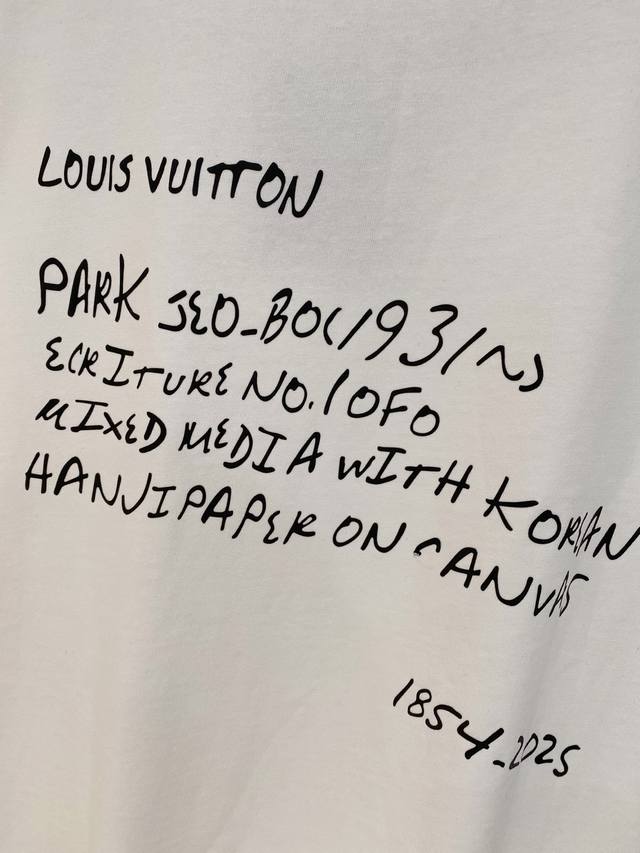 LOUIS VUITTON
PARK SEO_BO(1931~)
ECRITURE NO.1 OF 0
MIXED MEDIA WITH KOREAN
HANJI PAPER ON CANVAS
1854_2025